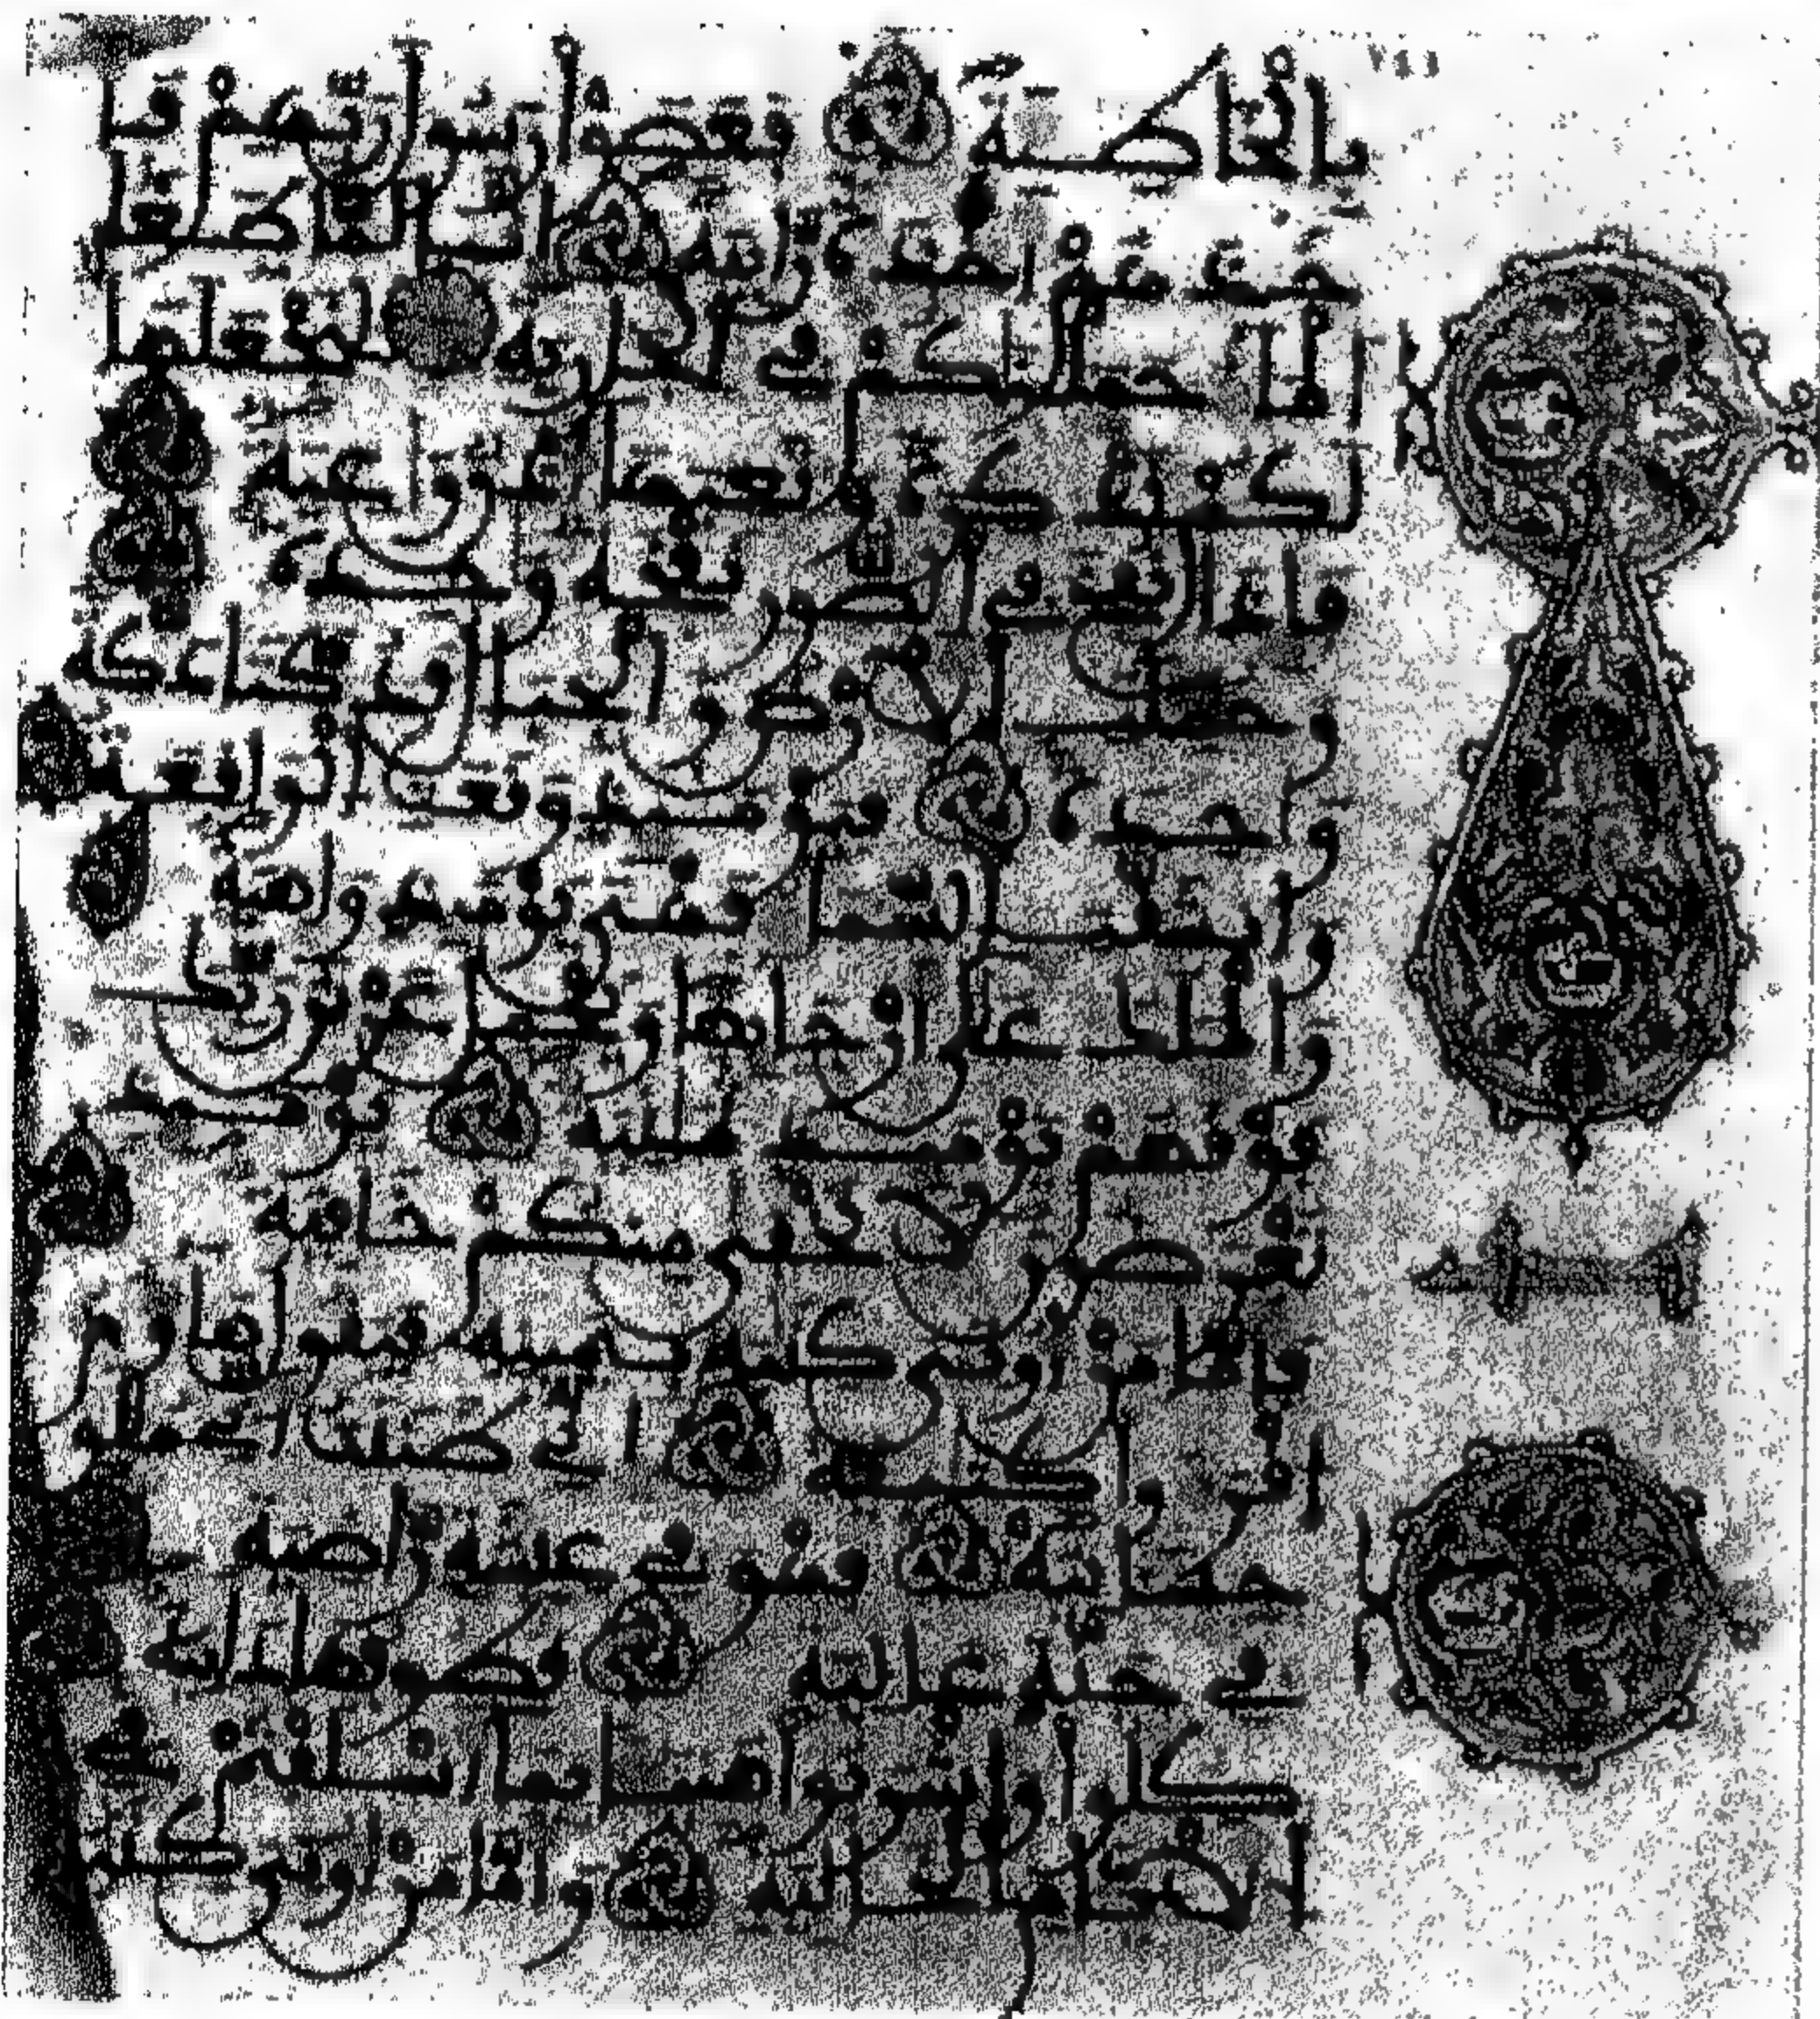 بالخاطئة فعصوا رسول ربهم فأ
خذهم أخذة رابية إنا لما طغا
الماء حملنكم في الجارية لنجعلها
لكم تذكرة وتعيها أذن واعية
فإذا نفخ في الصور نفخة وحدة
وحملت الأرض والجبال فدكتا دكة
وحدة فيومئذ وقعت الواقعة
وانشقت السماء فهي يومئذ واهية
والملك على أرجائها ويحمل عرش ربك
فوقهم يومئذ ثمنية يومئذ
تعرضون لا تخفى منكم خافية
فأما من أوتي كتبه بيمينه فيقول هاؤم
اقرءوا كتبيه إني ظننت أني ملق
حسابيه فهو في عيشة راضية
في جنة عالية قطوفها دانية
كلوا واشربوا هنيئا بما أسلفتم في
الأيام الخالية وأما من أوتي كتبه